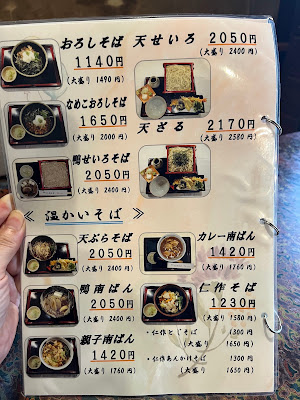 おろしそば
1140円
(大盛り 1490 円)
天せいろ 2050円
(大盛り 2400 円)
なめこおろしそば
1650円
(大盛り 2000 円)
天ざる 2170円
(大盛り 2580 円)
鴨せいろそば
2050円
(大盛り 2400 円)
≪ 温かいそば ≫
天ぷらそば
2050円
(大盛り 2400 円)
カレー南ばん
1420円
(大盛り 1760 円)
鴨南ばん
2050円
(大盛り 2400 円)
仁作そば
1230円
(大盛り 1580 円)
親子南ばん
1420円
(大盛り 1760 円)
・仁作とじそば 1300 円
(大盛り 1650 円)
・仁作あんかけそば 1300 円
(大盛り 1650 円)